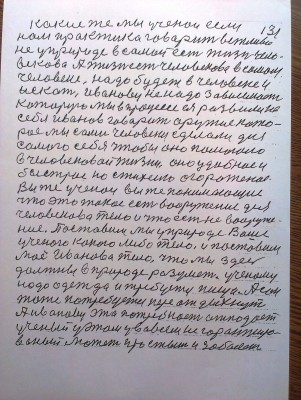 131
Какие же мы ученои если
нам практика говарит вежливо
не уприроде в самом ест жизн чело-
века А тиизнет человеков в самом
человеке, надо будет в человеке и
искат, Иванову не надо завидоват
которую мы в процессе развили на
себя Иванов говарит оружие кото-
рое мы сами человеки сделали для
самого себя чтобы оно помогало
в человековой жизни, оно удобное и
быстрое но огорожена.
Вы же ученои вы же понимающие
что это такое ест вооружение для
человекова тело и что ест не вооруже-
ние. Поставим мы уприроде Ваше
ученого какого либо тело, и поставим
моё Иванова тело, что мы здес
должны в природе разумет. ученому
надо одежда и требует пища. А сам
тоже потребует
А Иванову эта потребност отпадает
ученый у этом увсем не гарантиро-
ваный может простыт и заболет